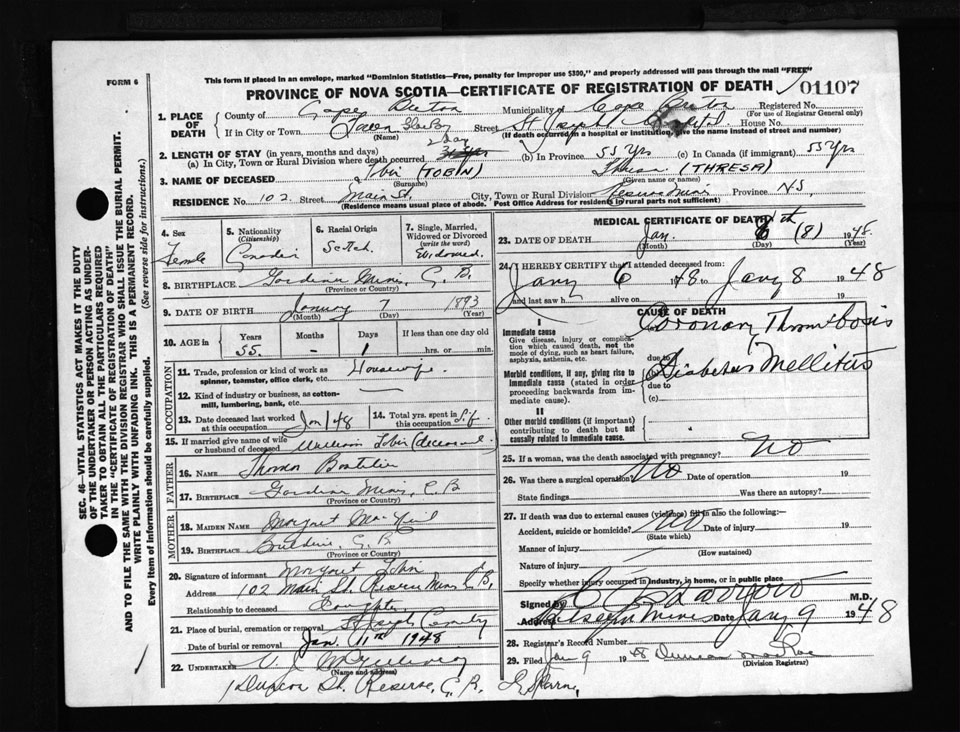 This form if placed in an envelope, marked "Dominion Statistics—Free, penalty for improper use $300," and properly addressed will pass through the mail "FREE"
FORM 6
PROVINCE OF NOVA SCOTIA—CERTIFICATE OF REGISTRATION OF DEATH 01107
1. PLACE OF DEATH
County of Cape Breton Municipality of Cape Breton Registered No.
(For use of Registrar General only)
If in City or Town Street St Joseph's Hospital House No.
(Name) (If death occurred in a hospital or institution, give the name instead of street and number)
2. LENGTH OF STAY (in years, months and days) 2 day
(a) In City, Town or Rural Division where death occurred (b) In Province 55 Yrs (c) In Canada (if immigrant) 55 Yrs
3. NAME OF DECEASED Tobin (TOBIN) (THRESA)
(Surname) (Given name or names)
RESIDENCE No. 102 Street Main St. City, Town or Rural Division Reserve Mines Province N.S
(Residence means usual place of abode. Post Office Address for residents in rural parts not sufficient)
4. Sex Female
5. Nationality (Citizenship) Canadian
6. Racial Origin Scotch.
7. Single, Married, Widowed or Divorced (write the word) Widowed.
8. BIRTHPLACE Gardiner Mines, C. B.
(Province or Country)
9. DATE OF BIRTH January 7 1893
(Month) (Day) (Year)
10. AGE in Years Months Days If less than one day old
55. - 1 hrs. or min.
OCCUPATION
11. Trade, profession or kind of work as spinner, teamster, office clerk, etc. Housewife.
12. Kind of industry or business, as cotton-mill, lumbering, bank, etc. —
13. Date deceased last worked at this occupation Jan/48
14. Total yrs. spent in this occupation Life.
15. If married give name of wife or husband of deceased William Tobin (deceased)
FATHER
16. NAME Thomas Boutilier
17. BIRTHPLACE Gardiner Mines, C.B
(Province or Country)
MOTHER
18. MAIDEN NAME Margaret MacNeil
19. BIRTHPLACE C. B.
(Province or Country)
20. Signature of informant Margaret Tobin
Address 102 Main St. Reserve Mines C.B.
Relationship to deceased Daughter
21. Place of burial, cremation or removal St Joseph Cemetry
Date of burial or removal Jan. 11th 1948
22. UNDERTAKER
(Name and address)
St. Reserve, C.B.
MEDICAL CERTIFICATE OF DEATH
23. DATE OF DEATH Jan. 8th (8) 1948.
(Month) (Day) (Year)
24. I HEREBY CERTIFY that I attended deceased from:
Jany 6 1948 to Jany 8 1948
and last saw h alive on 19
CAUSE OF DEATH
I
Immediate cause
Give disease, injury or complication which caused death, not the mode of dying, such as heart failure, asphyxia, asthenia, etc.
Coronary Thrombosis
due to
Morbid conditions, if any, giving rise to immediate cause (stated in order proceeding backwards from immediate cause).
Diabetes Mellitus
due to
(c)
II
Other morbid conditions (if important) contributing to death but not causally related to immediate cause.
25. If a woman, was the death associated with pregnancy? NO
26. Was there a surgical operation? NO Date of operation 19
State findings Was there an autopsy?
27. If death was due to external causes (violence) fill in also the following:—
Accident, suicide or homicide? NO Date of injury 19
(State which)
Manner of injury
(How sustained)
Nature of injury
Specify whether injury occurred in industry, in home, or in public place
Signed by M.D.
Address Reserve Mines Date Jany 9 1948
28. Registrar's Record Number
29. Filed Jan 9 1948 Duncan MacRae
(Division Registrar)
SEC. 46—VITAL STATISTICS ACT MAKES IT THE DUTY
OF THE UNDERTAKER OR PERSON ACTING AS UNDER-
TAKER TO OBTAIN ALL THE PARTICULARS REQUIRED
IN THE "CERTIFICATE OF REGISTRATION OF DEATH"
AND TO FILE THE SAME WITH THE DIVISION REGISTRAR WHO SHALL ISSUE THE BURIAL PERMIT.
WRITE PLAINLY WITH UNFADING INK. THIS IS A PERMANENT RECORD.
Every item of information should be carefully supplied. (See reverse side for instructions.)